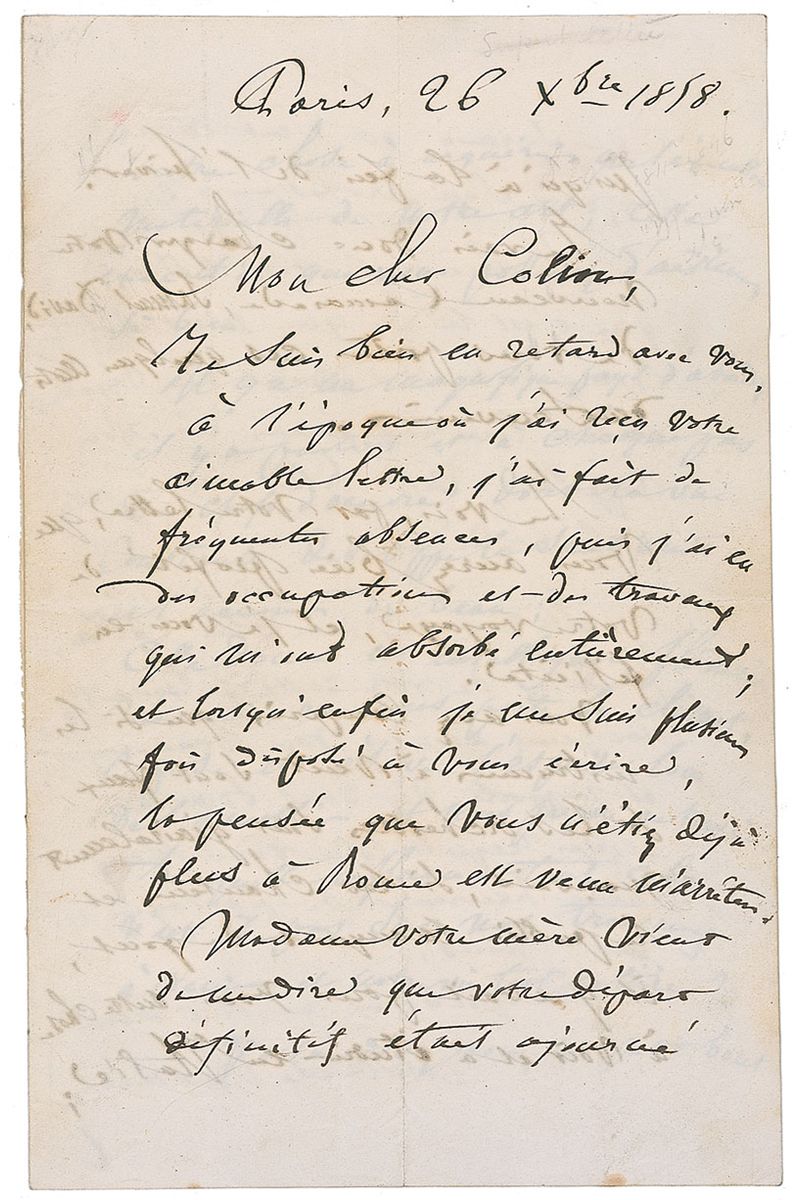 Paris, 26 Xbre 1858.
Mon cher Colin,
Je suis bien en retard avec vous,
à l'époque où j'ai reçu votre
aimable lettre, j'ai fait de
fréquentes absences, puis j'ai eu
des occupations et des travaux
qui m'ont absorbé entièrement;
et lorsqu'enfin je me suis plusieurs
fois disposé à vous écrire,
la pensée que vous n'étiez déjà
plus à Rome est venu m'arrêter.
Madame votre mère vient
de me dire que votre départ
définitif était ajourné